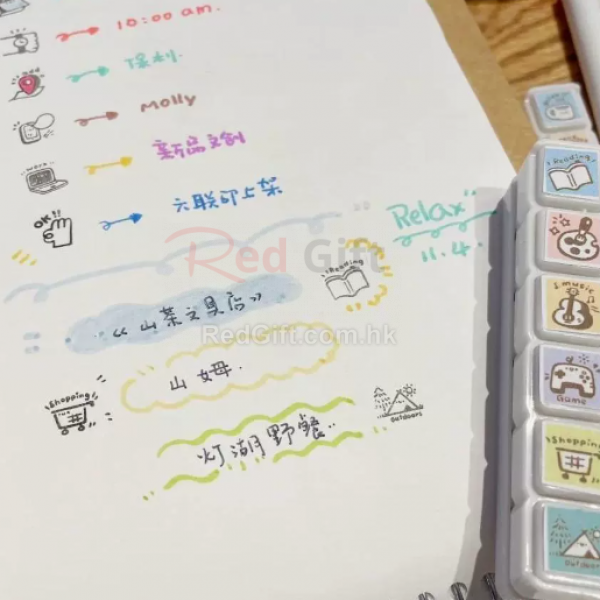 10:00 am.
保利.
Molly
新品文创
work
六联印上架
OK!!
Relax
11.4.
Red Gift
Reading
《山茶文具店》
RedGift.com.hk
山姆.
Shopping
灯湖野餐..
outdoors
Reading
music
Game
Shopping
outdoors